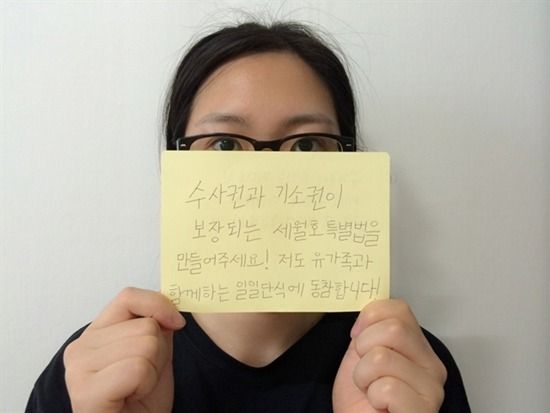 수사권과 기소권이
보장되는 세월호 특별법을
만들어주세요! 저도 유가족과
함께하는 일일단식에 동참합니다!